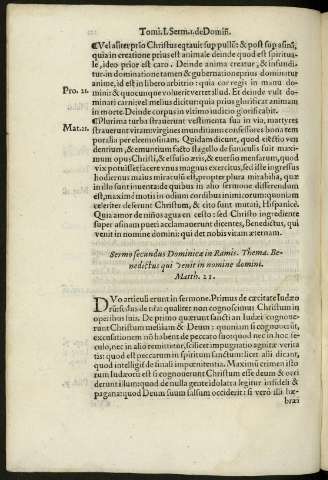 Tomi.I.Serm.1.de Domiñ.
¶Vel aliter prio Christus eqtauit sup pullũ: & post sup asinã,
quia in creatione prius est animale deinde quod est spiritua-
le, ideo prior est caro. Deinde anima creatur, & infundi-
tur: in dominatione tamen & gubernatione prius dominatur
animæ, id est in libero arbitrio: quia cor regis in manu do-
Pro. 21.
mini: & quocunque voluerit vertet illud. Et deinde vult do-
minati carni: vel melius dicitur quia prius glorificat animam
in morte. Deinde corpus in vltimo iudicio glorificabit.
¶Plurima turba strauerunt vestimenta sua in via, martyres
Mat. 21.
strauerunt vitam virgines munditiam confessores bona tem
poralia per eleemosinam. Quidam dicunt, quod eiectio ven
dentium, & emutium facto flagello de funiculis fuit maxi-
mum opus Christi, & effusio æris, & euersio mensarum, quod
vix potuisset facere vnus magnus exercitus, sed iste ingressus
hodiernus maius miraculũ est, propter plura mirabilia, quæ
in illo sunt inuenta: de quibus in alio sermone disserendum
est, maximè motu in odium cordibus inimicorum: quoniam
celeriter deserunt Christum, & cito sunt mutati, Hispanicè.
Quia amor de niños agua en cesto: sed Christo ingrediente
super asinam pueri acclamauerunt dicentes, Benedictus, qui
venit in nomine domini: qui det nobis vitam æternam.
Sermo secundus Dominica in Ramis. Thema. Be-
nedictus qui venit in nomine domini.
Matth. 21.
DVo articuli erunt in sermone. Primus de cæcitate Iudæo
rũ: secundus de
operibus suis. De primo quærunt sancti an Iudæi cognoue-
runt Christum messiam & Deum: quoniam si cognouerũt,
excusationem nõ habent de peccato suo: quod nec in hoc se-
culo, nec in alio remittitur, scilicet impugnatio agnitæ verita
tis: quod est peccatum in spiritum sanctum: licet alii dicant,
quod intelligit de finali impœnitentia. Maximũ crimen isto
rum Iudæorũ est si cognouerunt Christum esse deum & occi
derunt illum: quod de nulla gente idolatra legitur infideli &
pagana: quod Deum suum falsum occiderit: si verò illi hæ-
bræi